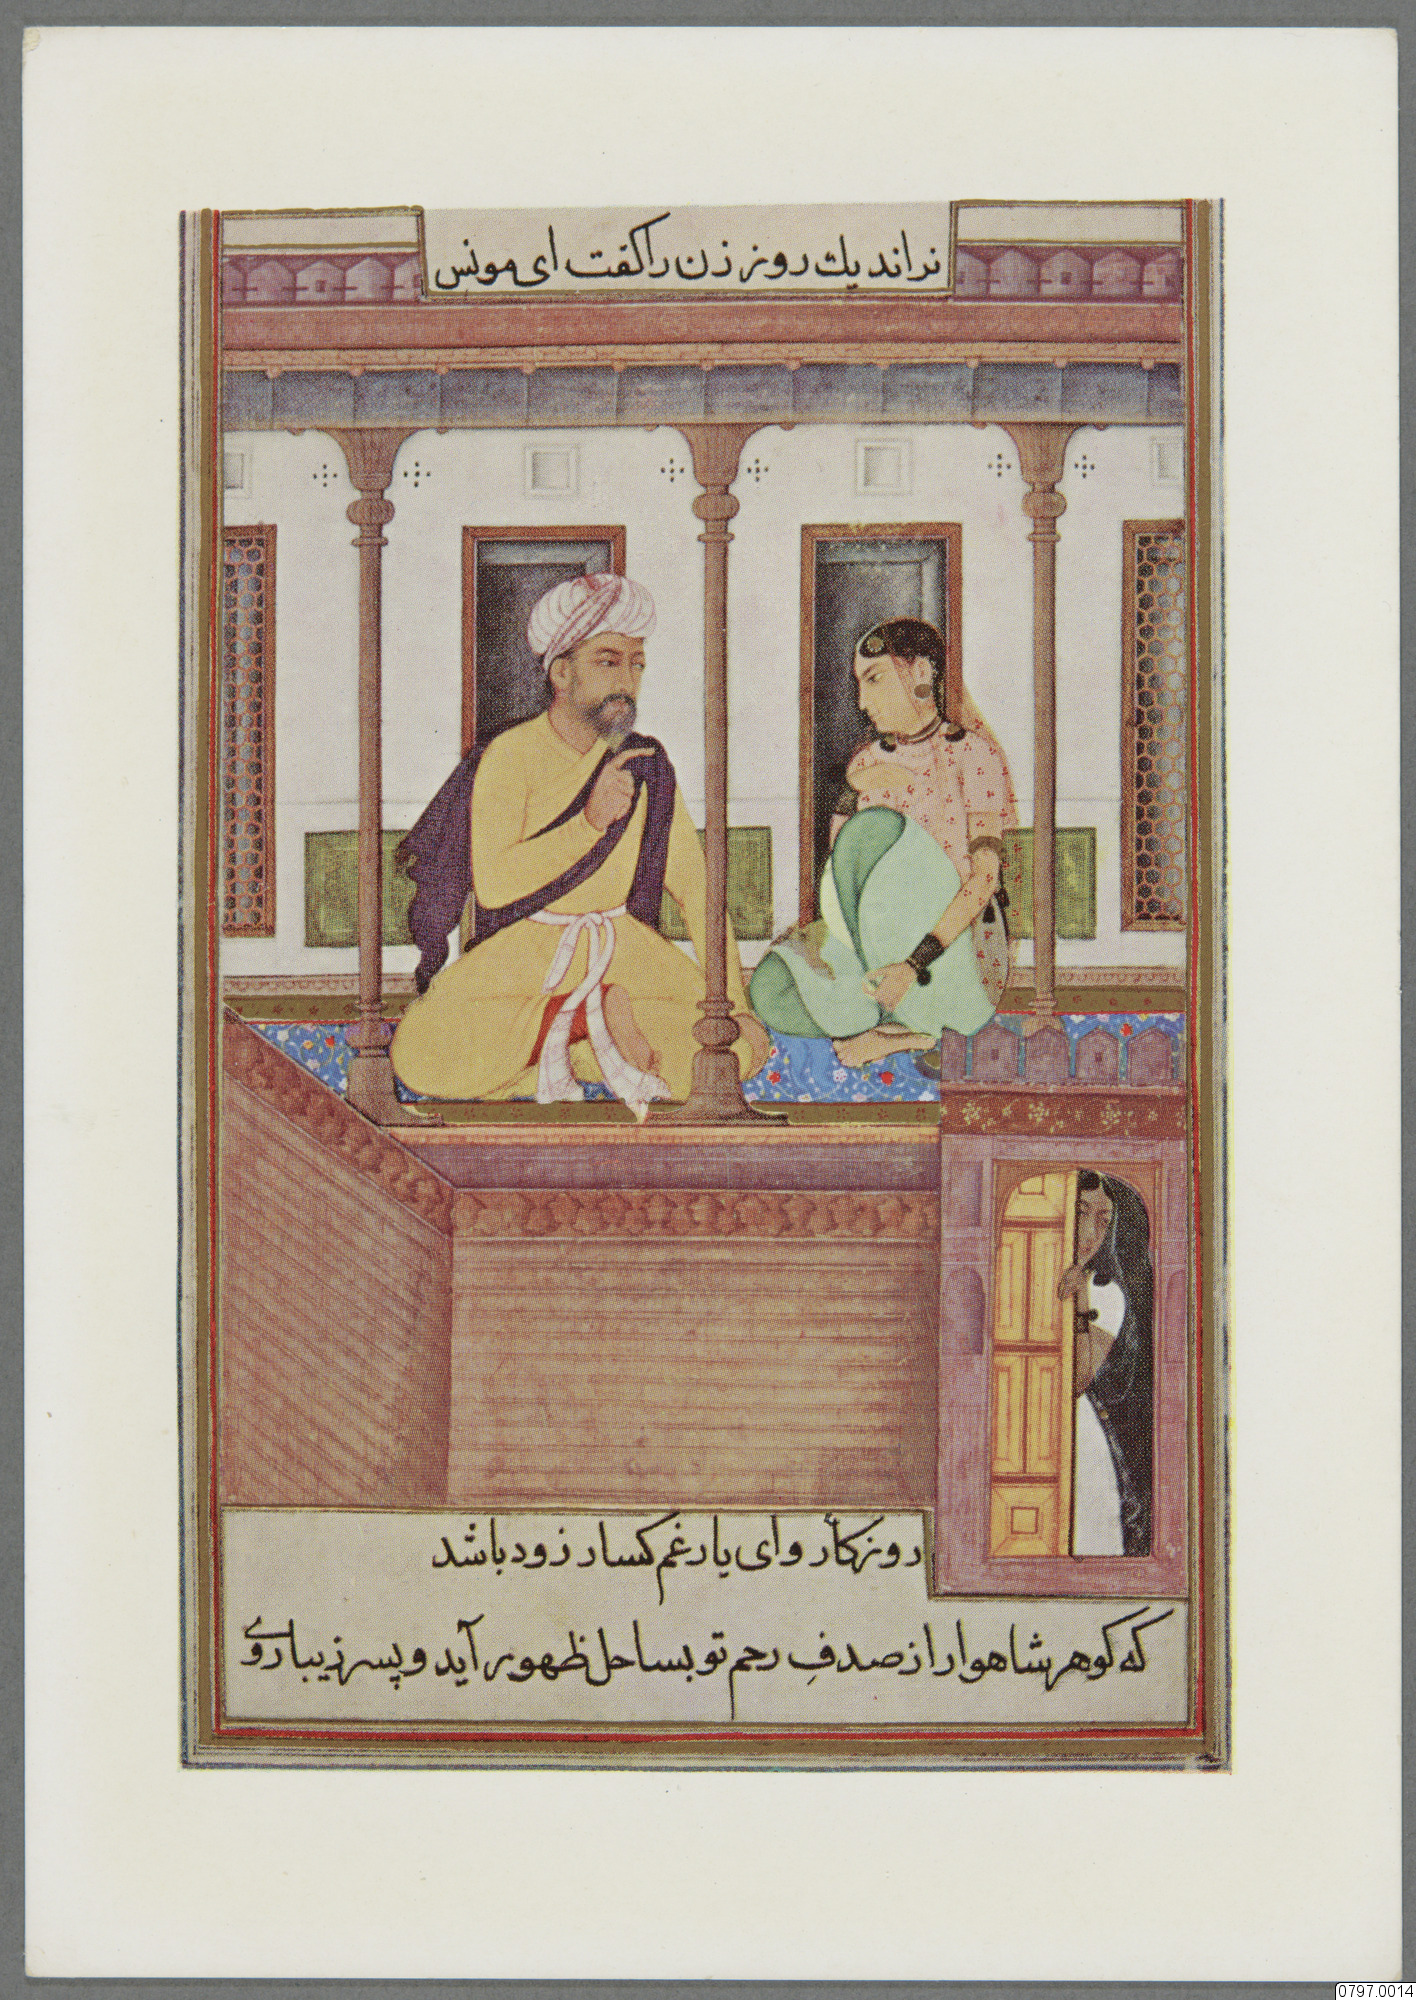 نراند یك روز زن را گفت ای مونس
روزگار و ای یار غم‌گسار زود باشد
که گوهر شاهوار از صدفِ رحم تو بساحل ظهور آید و پسر زیبا روی
0797.0014